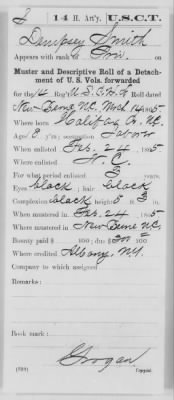 S | 14 H. Art'y. | U.S.C.T.
Dempsey Smith
Appears with rank of Priv. on
Muster and Descriptive Roll of a Detachment of U. S. Vols. forwarded
for the 14 Reg't U.S.C.H.A. Roll dated
New Berne N.C. Mch 14, 1865.
Where born Halifax Co. N.C.
Age 18 y'rs; occupation Laborer
When enlisted Feb. 24, 1865
Where enlisted N. C.
For what period enlisted 3 years.
Eyes black; hair black
Complexion black; height 5 ft. 3 in.
When mustered in Feb. 24, 1865
Where mustered in New Berne N.C.
Bounty paid $ 100; due $ 300 100
Where credited Albany, N.Y.
Company to which assigned
Remarks:
Book mark:
Grogan
Copyist.